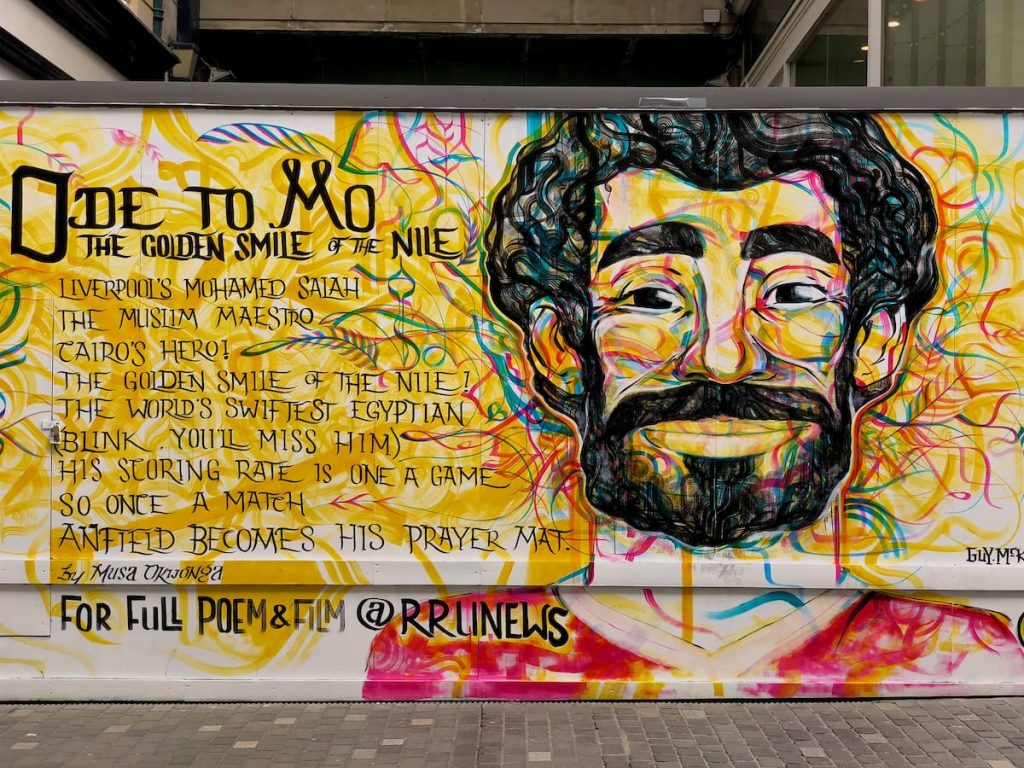 ODE TO MO
THE GOLDEN SMILE OF THE NILE
LIVERPOOL'S MOHAMED SALAH
THE MUSLIM MAESTRO
CAIRO'S HERO!
THE GOLDEN SMILE OF THE NILE!
THE WORLD'S SWIFTEST EGYPTIAN
(BLINK. YOU'LL MISS HIM)
HIS SCORING RATE IS ONE A GAME
SO ONCE A MATCH
ANFIELD BECOMES HIS PRAYER MAT.
by MUSA OKWONGA
FOR FULL POEM & FILM @RRUNEWS
GUY.McK